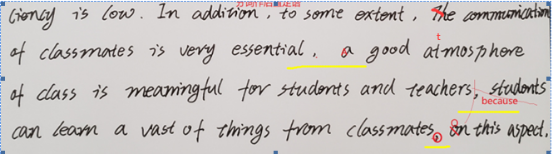 ciency is low. In addition, to some extent, the communication
of classmates is very essential. a good atmosphere
t
of class is meaningful for students and teachers, students
because
can learn a vast of things from classmates. On this aspect,